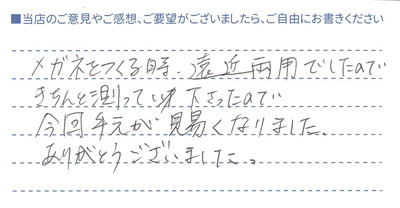 ■当店のご意見やご感想、ご要望がございましたら、ご自由にお書きください
メガネをつくる時、遠近両用でしたので
きちんと測って 下さったので
今回手元が見易くなりました。
ありがとうございました。